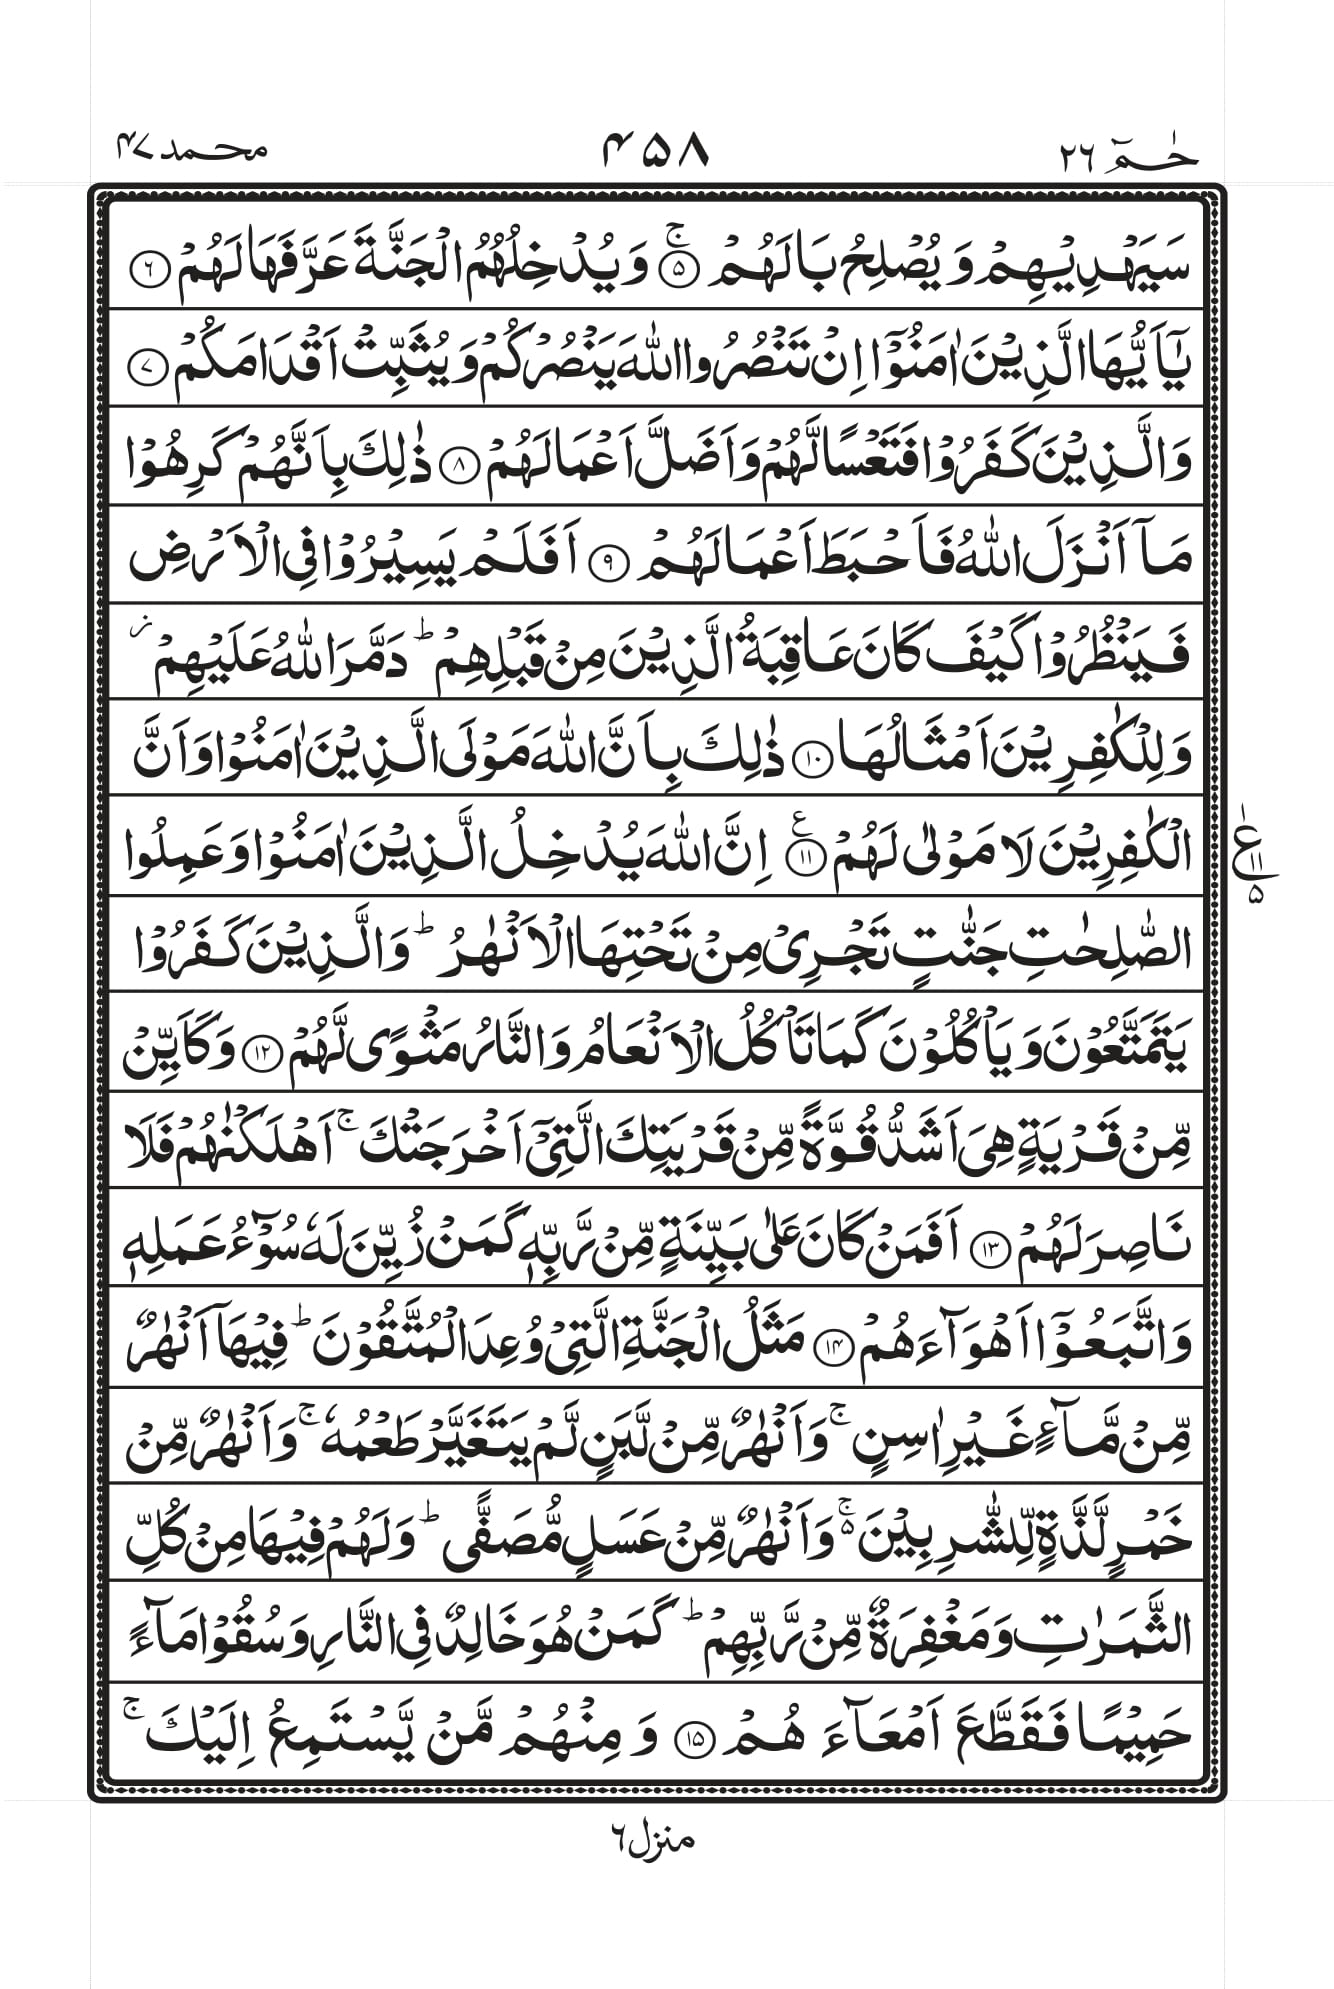 حٰمٓ ٢٦
۴۵۸
محمد ۴۷
سَيَهْدِيْهِمْ وَيُصْلِحُ بَالَهُمْ ۝۵ۚ وَيُدْخِلُهُمُ الْجَنَّةَ عَرَّفَهَا لَهُمْ ۝۶
يٰٓاَيُّهَا الَّذِيْنَ اٰمَنُوْٓا اِنْ تَنْصُرُوا اللّٰهَ يَنْصُرْكُمْ وَيُثَبِّتْ اَقْدَامَكُمْ ۝۷
وَالَّذِيْنَ كَفَرُوْا فَتَعْسًا لَّهُمْ وَاَضَلَّ اَعْمَالَهُمْ ۝۸ ذٰلِكَ بِاَنَّهُمْ كَرِهُوْا
مَآ اَنْزَلَ اللّٰهُ فَاَحْبَطَ اَعْمَالَهُمْ ۝۹ اَفَلَمْ يَسِيْرُوْا فِي الْاَرْضِ
فَيَنْظُرُوْا كَيْفَ كَانَ عَاقِبَةُ الَّذِيْنَ مِنْ قَبْلِهِمْ ؕ دَمَّرَ اللّٰهُ عَلَيْهِمْ ز
وَلِلْكٰفِرِيْنَ اَمْثَالُهَا ۝۱۰ ذٰلِكَ بِاَنَّ اللّٰهَ مَوْلَى الَّذِيْنَ اٰمَنُوْا وَاَنَّ
الْكٰفِرِيْنَ لَا مَوْلٰى لَهُمْ ۝۱۱ع اِنَّ اللّٰهَ يُدْخِلُ الَّذِيْنَ اٰمَنُوْا وَعَمِلُوا
ع ۱ ۱۱ ۵
الصّٰلِحٰتِ جَنّٰتٍ تَجْرِيْ مِنْ تَحْتِهَا الْاَنْهٰرُ ؕ وَالَّذِيْنَ كَفَرُوْا
يَتَمَتَّعُوْنَ وَيَاْكُلُوْنَ كَمَا تَاْكُلُ الْاَنْعَامُ وَالنَّارُ مَثْوًى لَّهُمْ ۝۱۲ وَكَاَيِّنْ
مِّنْ قَرْيَةٍ هِيَ اَشَدُّ قُوَّةً مِّنْ قَرْيَتِكَ الَّتِيْٓ اَخْرَجَتْكَ ۚ اَهْلَكْنٰهُمْ فَلَا
نَاصِرَ لَهُمْ ۝۱۳ اَفَمَنْ كَانَ عَلٰى بَيِّنَةٍ مِّنْ رَّبِّهٖ كَمَنْ زُيِّنَ لَهٗ سُوْٓءُ عَمَلِهٖ
وَاتَّبَعُوْٓا اَهْوَآءَهُمْ ۝۱۴ مَثَلُ الْجَنَّةِ الَّتِيْ وُعِدَ الْمُتَّقُوْنَ ؕ فِيْهَآ اَنْهٰرٌ
مِّنْ مَّآءٍ غَيْرِ اٰسِنٍ ۚ وَاَنْهٰرٌ مِّنْ لَّبَنٍ لَّمْ يَتَغَيَّرْ طَعْمُهٗ ۚ وَاَنْهٰرٌ مِّنْ
خَمْرٍ لَّذَّةٍ لِّلشّٰرِبِيْنَ ۵ۚ وَاَنْهٰرٌ مِّنْ عَسَلٍ مُّصَفًّى ؕ وَلَهُمْ فِيْهَا مِنْ كُلِّ
الثَّمَرٰتِ وَمَغْفِرَةٌ مِّنْ رَّبِّهِمْ ؕ كَمَنْ هُوَ خَالِدٌ فِي النَّارِ وَسُقُوْا مَآءً
حَمِيْمًا فَقَطَّعَ اَمْعَآءَ هُمْ ۝۱۵ وَ مِنْهُمْ مَّنْ يَّسْتَمِعُ اِلَيْكَ ۚ
منزل ۶